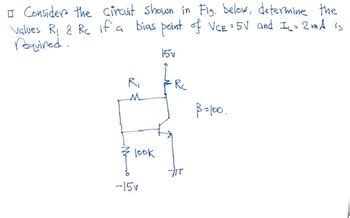 □ Consider the circuit shown in Fig. below, determine the
values R₁ & Rc if a bias point of VCE = 5V and Ic = 2mA is
required.
15V
R₁
Rc
β=100.
100K
-15V